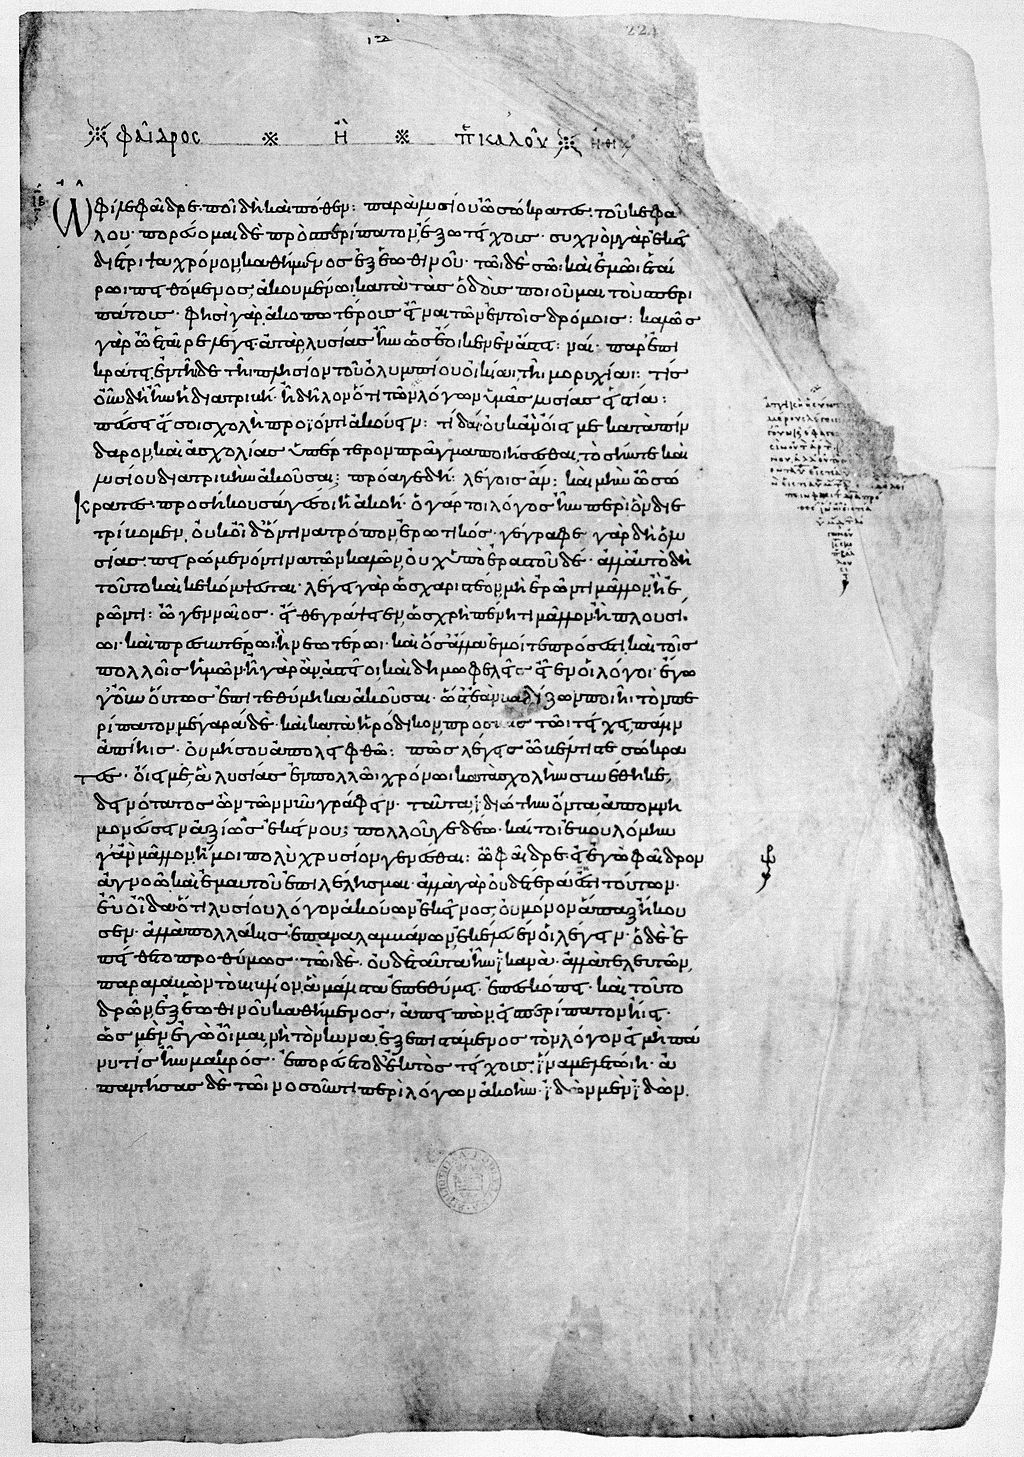 φαῖδρος ἢ π καλοῦ
Ὦ φίλε φαῖδρε· ποῖ δὴ καὶ πόθεν: παρὰ λυσίου ὦ σώκρατες· τοῦ κεφά
λου· πορεύομαι δὲ πρὸς περίπατον ἔξω τείχους· συχνὸν γὰρ ἐκεῖ
διέτριψα χρόνον, καθήμενος ἐξ ἑωθινοῦ· τῶι δὲ σῶι καὶ ἐμῶι ἑταί
ρωι πειθόμενος, ἀκουμενῶι κατὰ τὰς ὁδοὺς ποιοῦμαι τοὺς περι
πάτους· φησὶ γὰρ ἀκοπωτέρους εἶναι τῶν ἐν τοῖς δρόμοις: καλῶς
γὰρ ὦ ἑταῖρε λέγει· ἀτὰρ λυσίας ἦν ὡς ἔοικεν ἐν ἄστει: ναί· παρ' ἐπι
κράτει, ἐν τῆιδε τῆι πλησίον τοῦ ὀλυμπίου οἰκίαι τῆι μορυχίαι: τίς
οὖν δὴ ἦν ἡ διατριβή· ἢ δῆλον ὅτι τῶν λόγων ὑμᾶς λυσίας εἱστία:
πεύσει εἴ σοι σχολὴ προϊόντι ἀκούειν: τί δαί· οὐκ ἂν οἴει με κατὰ πίν
δαρον, καὶ ἀσχολίας ὑπέρτερον πρᾶγμα ποιήσεσθαι, τὸ σήν τε καὶ
λυσίου διατριβὴν ἀκοῦσαι: πρόαγε δή: λέγοις ἄν: καὶ μὴν ὦ σώ
κρατες· προσήκουσά γέ σοι ἡ ἀκοή· ὁ γάρ τοι λόγος ἦν περὶ ὃν διε
τρίβομεν, οὐκ οἶδ' ὅντινα τρόπον ἐρωτικός· γέγραφε γὰρ δὴ ὁ λυ
σίας· πειρώμενόν τινα τῶν καλῶν, οὐχ ὑπ' ἐραστοῦ δέ· ἀλλ' αὐτὸ δὴ
τοῦτο καὶ κεκόμψευται· λέγει γὰρ ὡς χαριστέον μὴ ἐρῶντι μᾶλλον, ἢ ἐ
ρῶντι: ὢ γενναῖος· εἴθε γράψειεν, ὡς χρὴ πένητι μᾶλλον ἢ πλουσί
ωι· καὶ πρεσβυτέρωι ἢ νεωτέρωι· καὶ ὅσα ἄλλα ἐμοί τε πρόσεστι, καὶ τοῖς
πολλοῖς ἡμῶν· ἦ γὰρ ἂν ἀστεῖοι καὶ δημωφελεῖς εἶεν οἱ λόγοι· ἔγω
γ' οὖν οὕτως ἐπιτεθύμηκα ἀκοῦσαι· ὥστ' ἐὰν βαδίζων ποιῆι τὸν πε
ρίπατον μέγαραδε· καὶ κατὰ ἡρόδικον, προσβὰς τῶι τείχει πάλιν
ἀπίηις· οὐ μή σου ἀπολειφθῶ: πῶς λέγεις ὦ βέλτιστε σώκρα
τες· οἴει με, ἃ λυσίας ἐν πολλῶι χρόνωι κατὰ σχολὴν συνέθηκε,
δεινότατος ὢν τῶν νῦν γράφειν· ταῦτα ἰδιώτην ὄντα ἀπομνη
μονεύσειν ἀξίως ἐκείνου; πολλοῦ γε δέω· καί τοι ἐβουλόμην
γ' ἂν μᾶλλον, ἤ μοι πολὺ χρυσίον γενέσθαι: ὦ φαῖδρε· εἰ ἐγὼ φαῖδρον
ἀγνοῶ, καὶ ἐμαυτοῦ ἐπιλέλησμαι· ἀλλὰ γὰρ οὐδέτερά ἐστι τούτων·
εὖ οἶδα ὅτι λυσίου λόγον ἀκούων ἐκεῖνος, οὐ μόνον ἅπαξ ἤκου
σεν· ἀλλὰ πολλάκις ἐπαναλαμβάνων, ἐκέλευέν οἱ λέγειν· ὁ δὲ ἐ
πείθετο προθύμως· τῶι δὲ· οὐδὲ ταῦτα ἦν ἱκανά· ἀλλὰ τελευτῶν,
παραλαβὼν τὸ βιβλίον, ἃ μάλιστα ἐπεθύμει ἐπεσκόπει· καὶ τοῦτο
δρῶν, ἐξ ἑωθινοῦ καθήμενος, ἀπειπὼν, εἰς περίπατον ἤιει·
ὡς μὲν ἐγὼ οἶμαι, νὴ τὸν κύνα, ἐξεπιστάμενος τὸν λόγον, εἰ μὴ πά
νυ τις ἦν μακρός· ἐπορεύετο δ' ἐκτὸς τείχους, ἵνα μελετώιη· ἀ
παντήσας δὲ τῶι νοσοῦντι περὶ λόγων ἀκοὴν· ἰδὼν μὲν ἰδὼν.